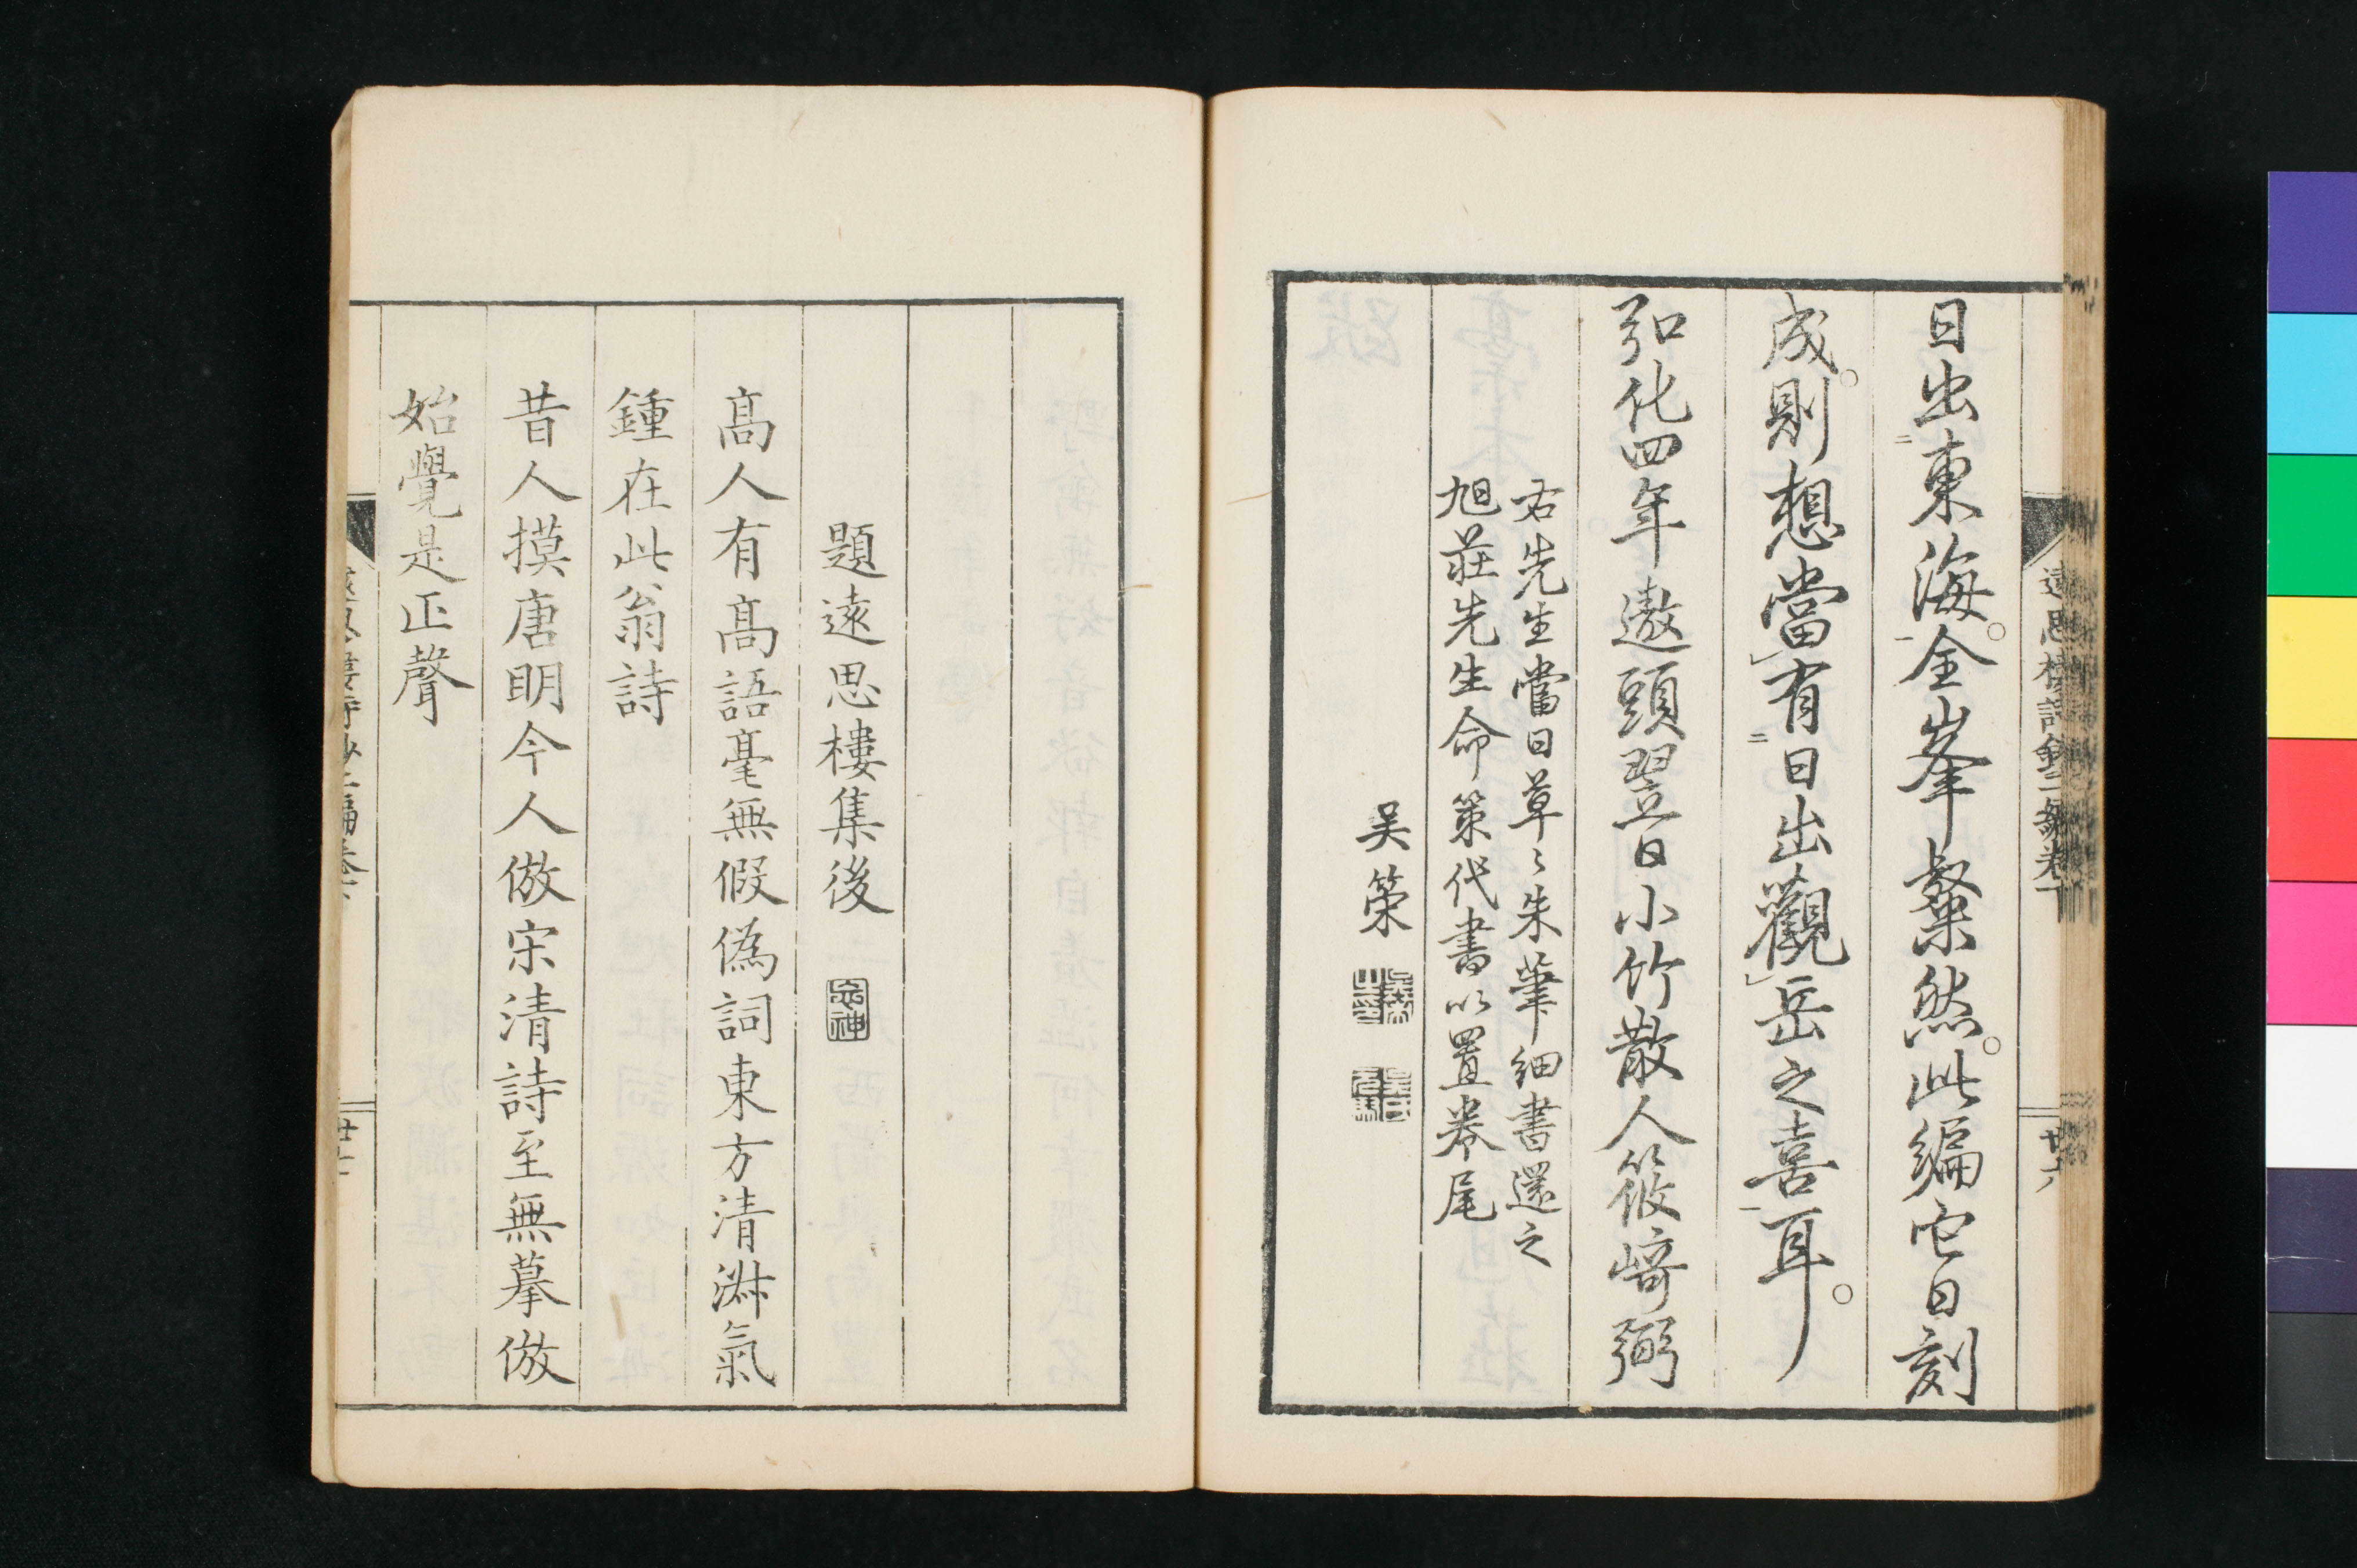 日出東海。全峯粲然。此編它日刻
成。則想當有日出觀岳之喜耳。
弘化四年遨頭翌日小竹散人筱崎弼
右先生嘗日草〻朱筆細書還之
旭莊先生命策代書以置卷尾
吴策
遠思樓詩鈔二編卷下
廿六
題遠思樓集後
高人有高語毫無假偽詞東方清淋氣
鍾在此翁詩
昔人摸唐明今人倣宋清詩至無摹倣
始覺是正聲
遠思樓詩鈔二編卷下
廿七